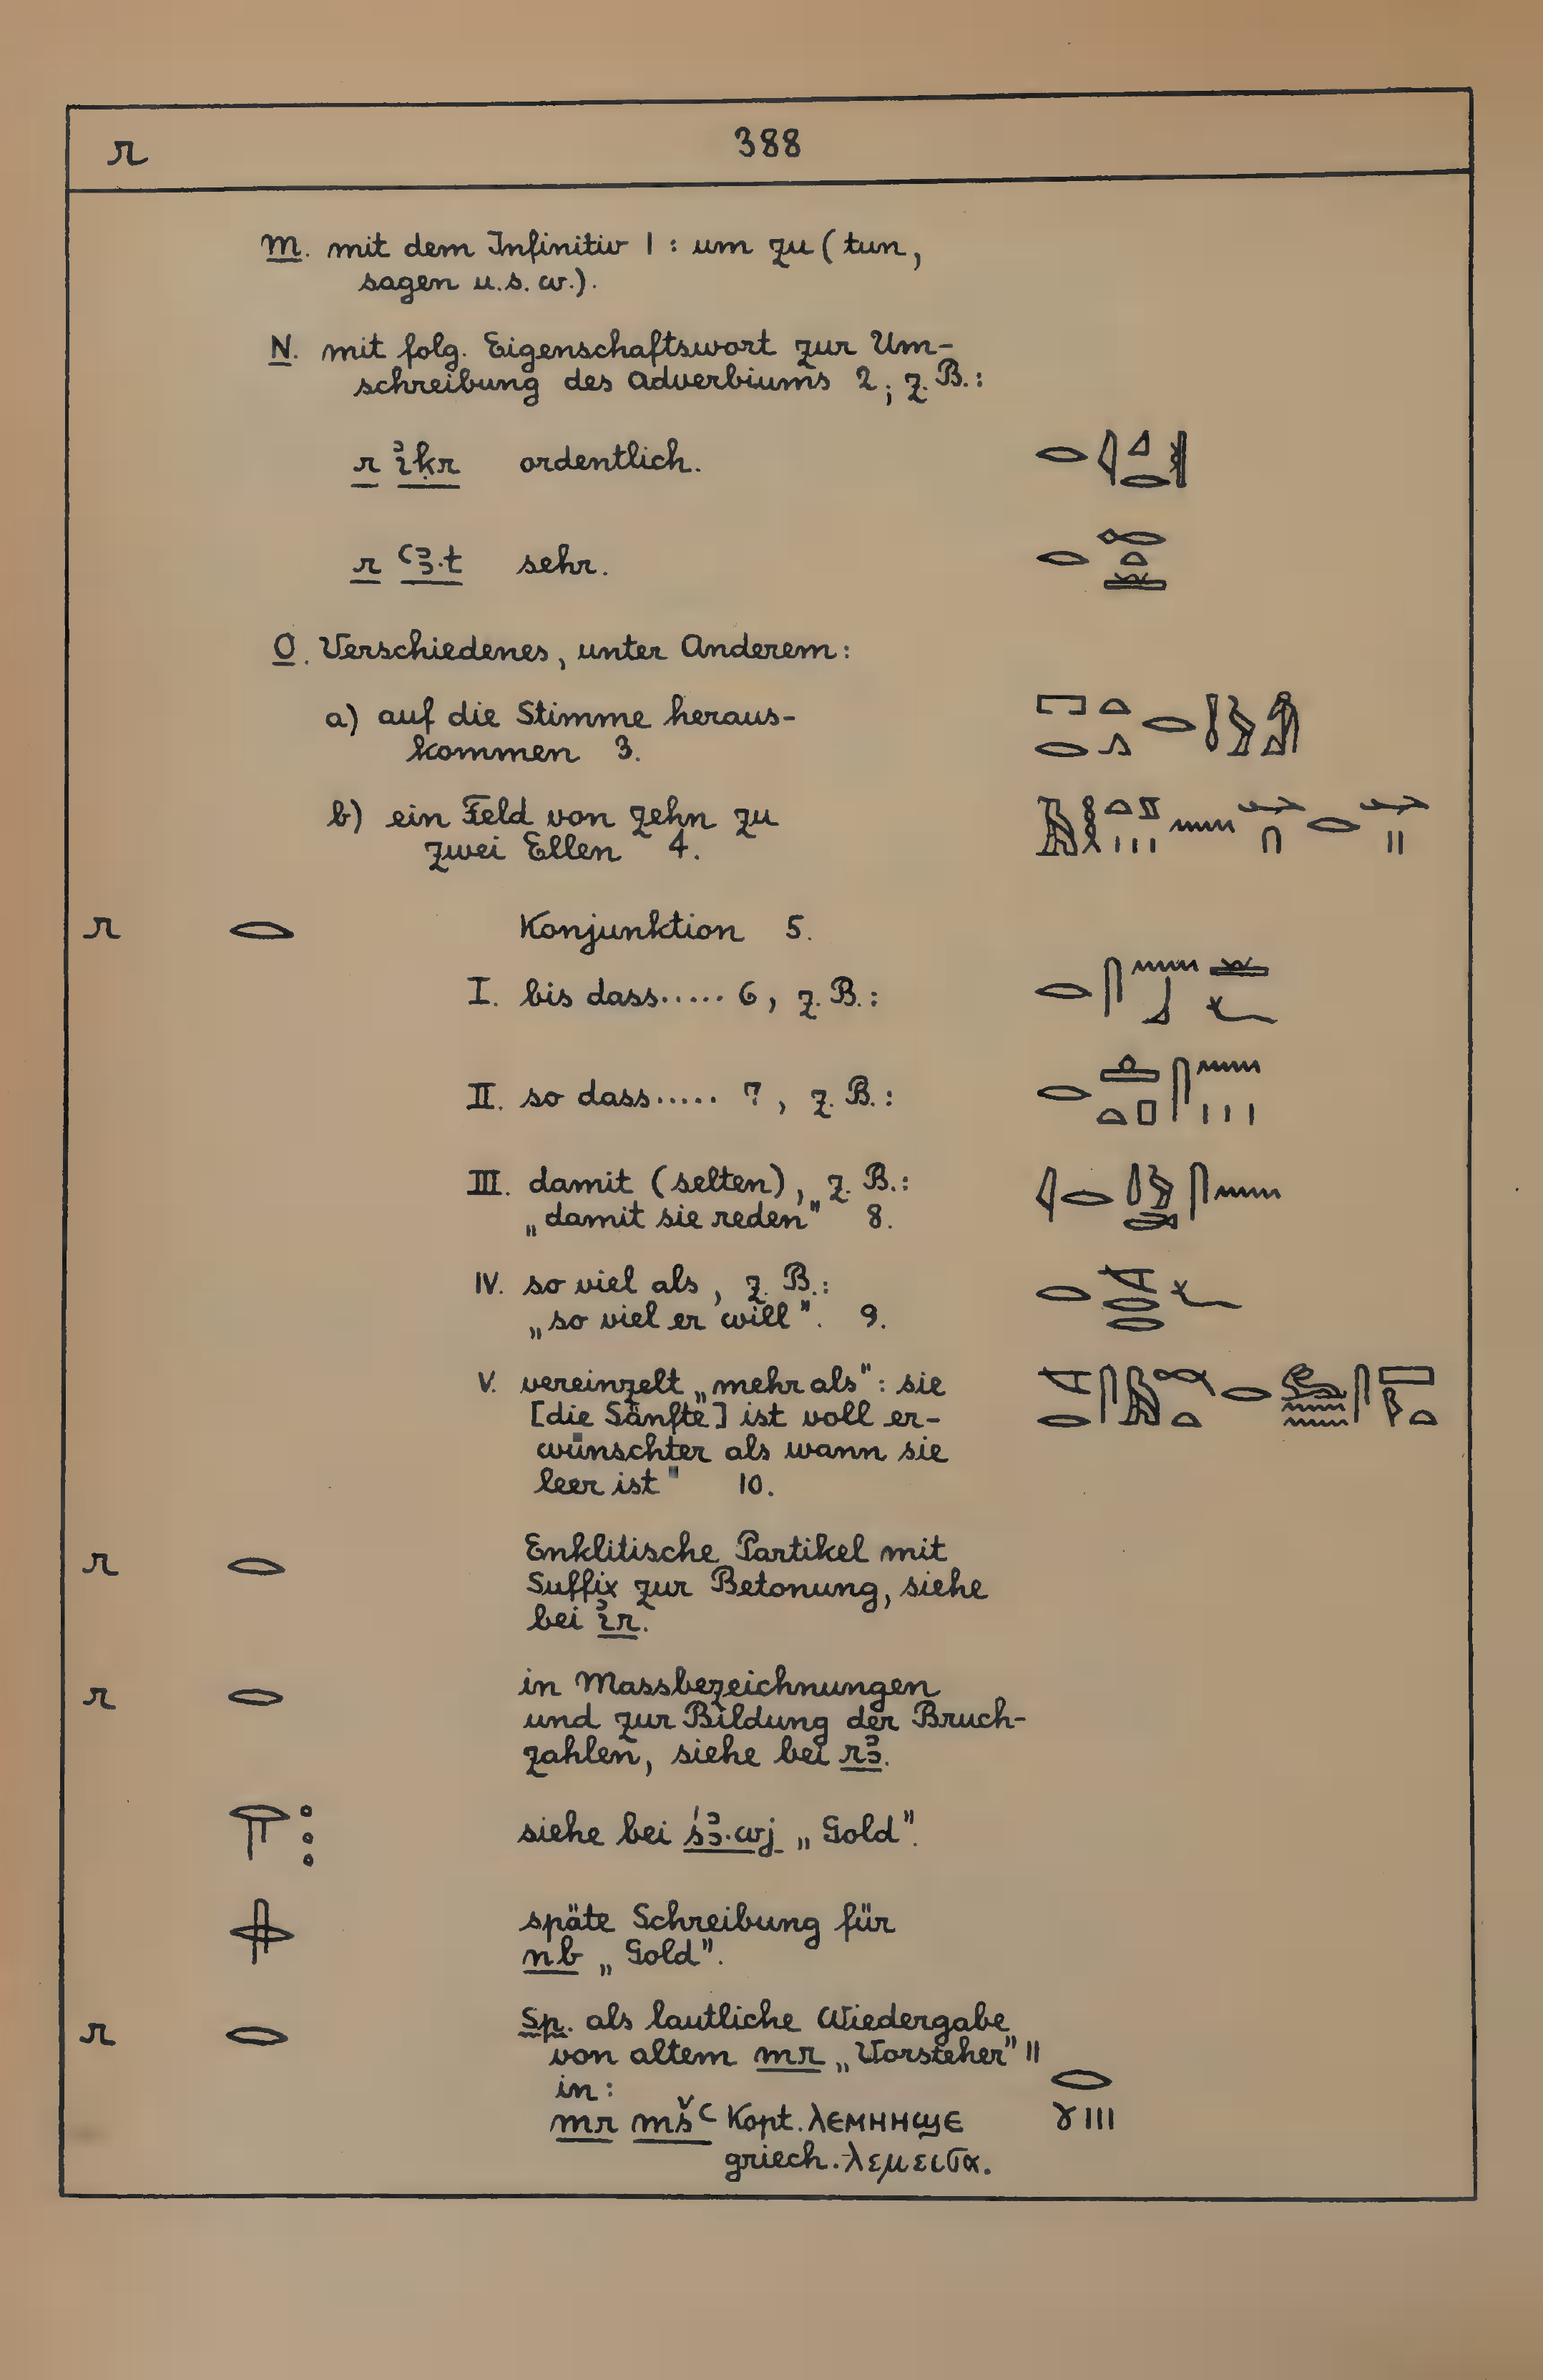 r 388
M. mit dem Infinitiv 1 : um zu (tun,
sagen u.s.w.).
N. mit folg. Eigenschaftswort zur Um-
schreibung des Adverbiums 2; z.B.:
r ỉḳr ordentlich.
r ꜥꜣ.t sehr.
O. Verschiedenes, unter Anderem:
a) auf die Stimme heraus-
kommen 3.
b) ein Feld von zehn zu
zwei Ellen 4.
r 𓂋 Konjunktion 5.
I. bis dass..... 6, z.B.:
II. so dass..... 7, z.B.:
III. damit (selten), z.B.:
„damit sie reden" 8.
IV. so viel als, z.B.:
„so viel er will". 9.
V. vereinzelt „mehr als": sie
[die Sänfte] ist voll er-
wünschter als wann sie
leer ist" 10.
r 𓂋 Enklitische Partikel mit
Suffix zur Betonung, siehe
bei ỉr.
r 𓂋 in Massbezeichnungen
und zur Bildung der Bruch-
zahlen, siehe bei rꜣ.
siehe bei śꜣ.wj „Gold".
späte Schreibung für
nb „Gold".
r 𓂋 Sp. als lautliche Wiedergabe
von altem mr „Vorsteher" 11
in:
mr mšꜥ Kopt. λεмннϣε
griech. λεμεισα.